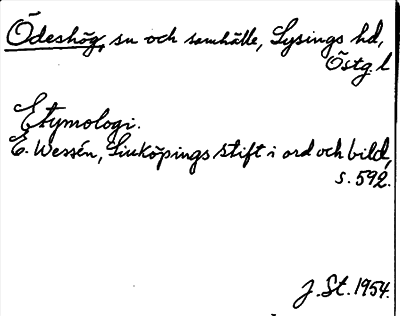 Ödeshög, sn och samhälle, Lysings hd,
Östg. l
Etymologi.
E. Wessén, Linköpings stift i ord och bild,
s. 592.
J. St. 1954.